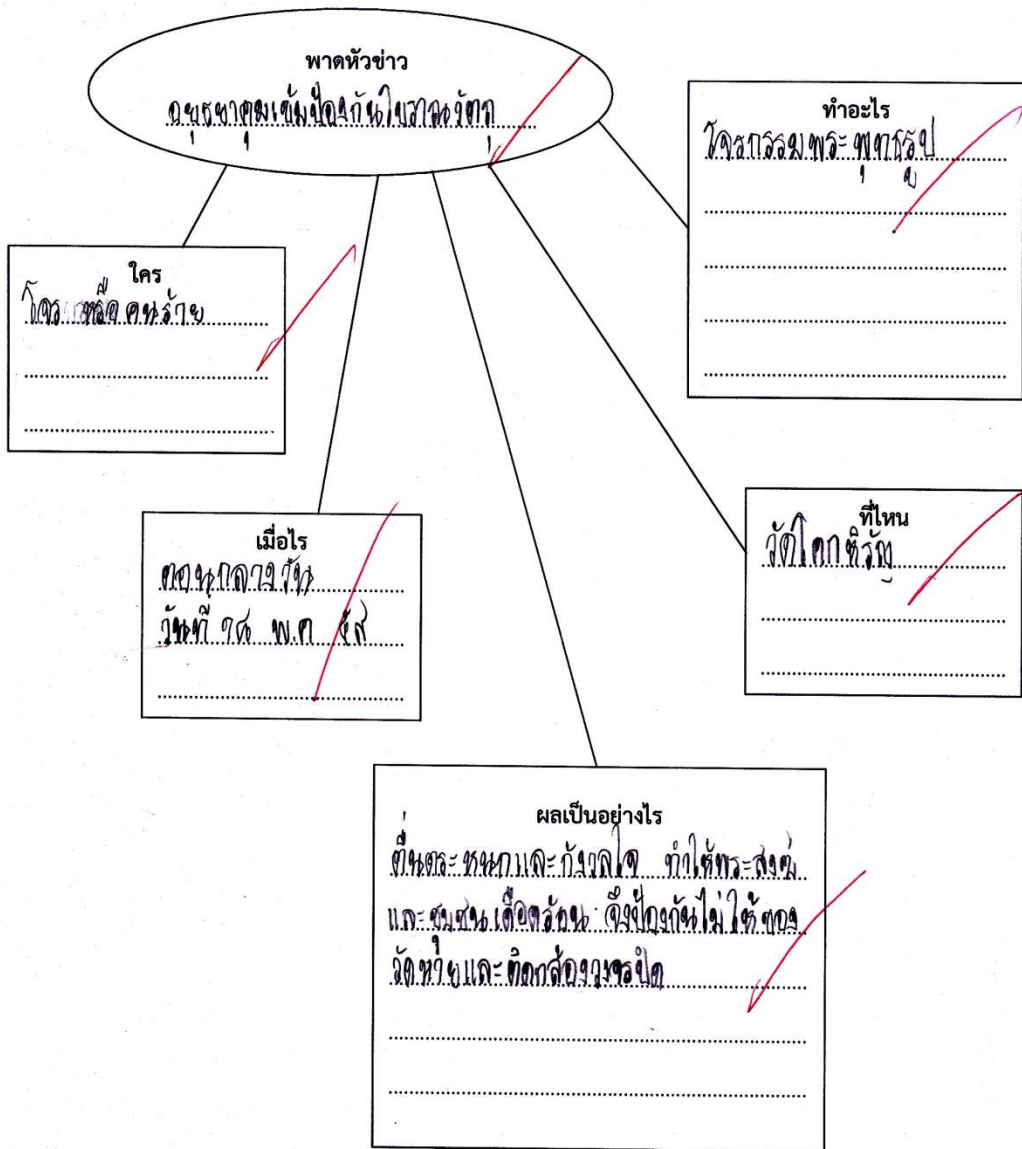 พาดหัวข่าว
อยุธยาคุมเข้มป้องกันโบราณวัตถุ
ทำอะไร
โจรกรรมพระพุทธรูป
ใคร
โจร หรือคนร้าย
เมื่อไร
ตอนกลางวัน
วันที่ ๑๘ พ.ค
ที่ไหน
วัดโคกหิรัญ
ผลเป็นอย่างไร
ตื่นตระหนกและกังวลใจ ทำให้พระสงฆ์
และชุมชนเดือดร้อน จึงป้องกันไม่ให้ของ
วัดหายและติดกล้องวงจรปิด